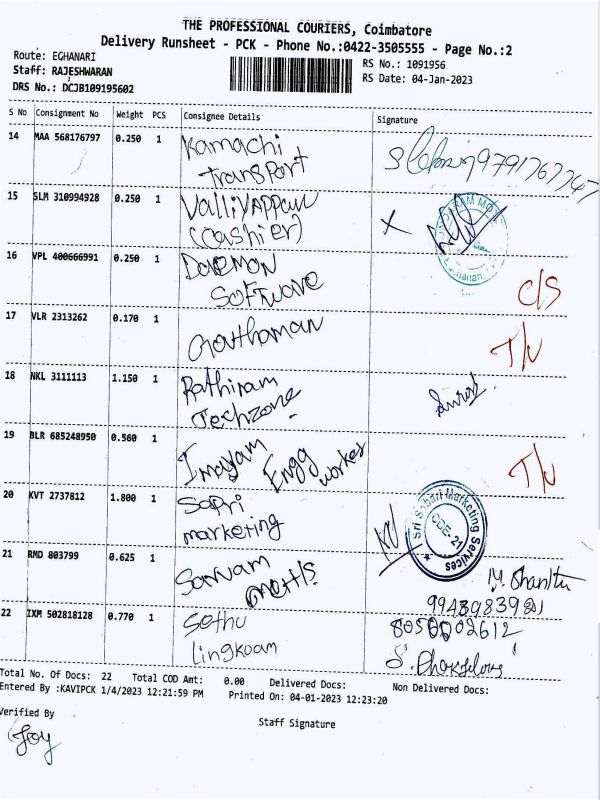 THE PROFESSIONAL COURIERS, Coimbatore
Delivery Runsheet - PCK - Phone No.:0422-3505555 - Page No.:2
Route: EGHANARI
RS No.: 1091956
Staff: RAJESHWARAN
RS Date: 04-Jan-2023
DRS No.: DCJB109195602
S No Consignment No Weight PCS Consignee Details Signature
14 MAA 568176797 0.250 1 Kamachi transport
15 SLM 310994928 0.250 1 Valliyappan (cashier) X
16 VPL 400666991 0.250 1 Daemon Software C/S
17 VLR 2313262 0.170 1 Gowthaman T/N
18 NKL 3111113 1.150 1 Rathinam Techzone
19 BLR 685248950 0.560 1 Imayam Engg workes T/N
20 KVT 2737812 1.800 1 Sapri marketing
Sri Sabari Marketing Services
CBE-21
21 RMD 803799 0.625 1 Sarvam
22 IXM 502818128 0.770 1 Sethu Lingkoam
Total No. Of Docs: 22 Total COD Amt: 0.00 Delivered Docs: Non Delivered Docs:
Entered By :KAVIPCK 1/4/2023 12:21:59 PM Printed On: 04-01-2023 12:23:20
Verified By Staff Signature
Joy